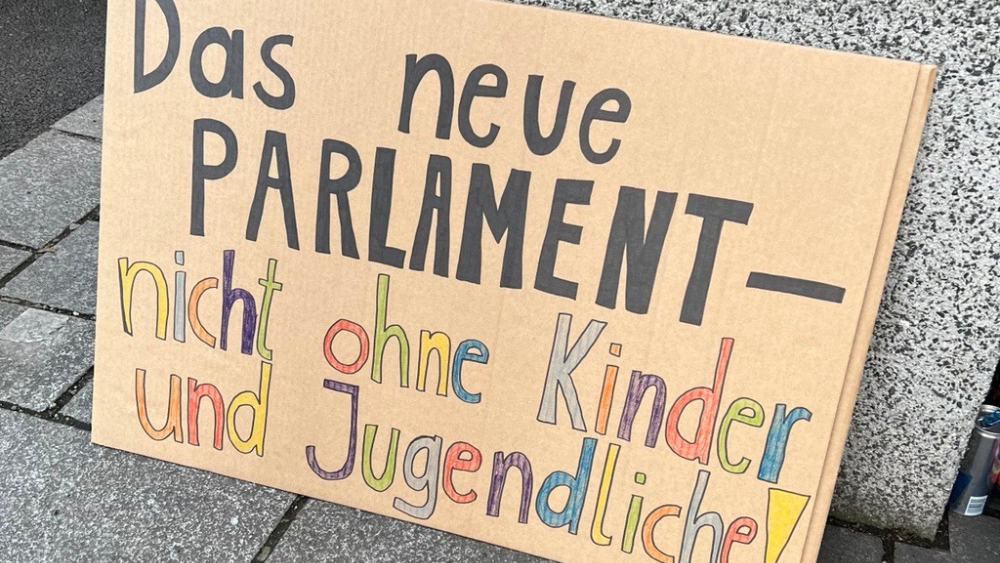 Das neue
PARLAMENT—
nicht ohne Kinder
und Jugendliche!